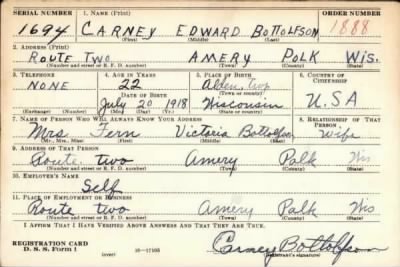 SERIAL NUMBER 1. NAME (Print) ORDER NUMBER
1694 CARNEY EDWARD BOTTOLFSON 1888
(First) (Middle) (Last)
2. ADDRESS (Print)
ROUTE TWO AMERY POLK WIS.
(Number and street or R. F. D. number) (Town) (County) (State)
3. TELEPHONE 4. AGE IN YEARS 5. PLACE OF BIRTH 6. COUNTRY OF CITIZENSHIP
NONE 22 Alden, twp
DATE OF BIRTH (Town or county)
July 20 1918 Wisconsin U.S.A
(Exchange) (Number) (Mo.) (Day) (Yr.) (State or country)
7. NAME OF PERSON WHO WILL ALWAYS KNOW YOUR ADDRESS 8. RELATIONSHIP OF THAT PERSON
Mrs. Fern Victoria Bottolfson Wife
(Mr., Mrs., Miss) (First) (Middle) (Last)
9. ADDRESS OF THAT PERSON
Route two Amery Polk Wis
(Number and street or R. F. D. number) (Town) (County) (State)
10. EMPLOYER'S NAME
Self
11. PLACE OF EMPLOYMENT OR BUSINESS
Route two Amery Polk Wis
(Number and street or R. F. D. number) (Town) (County) (State)
I AFFIRM THAT I HAVE VERIFIED ABOVE ANSWERS AND THAT THEY ARE TRUE.
REGISTRATION CARD
D. S. S. Form 1 (over) 16—17105 Carney Bottolfson
(Registrant's signature)